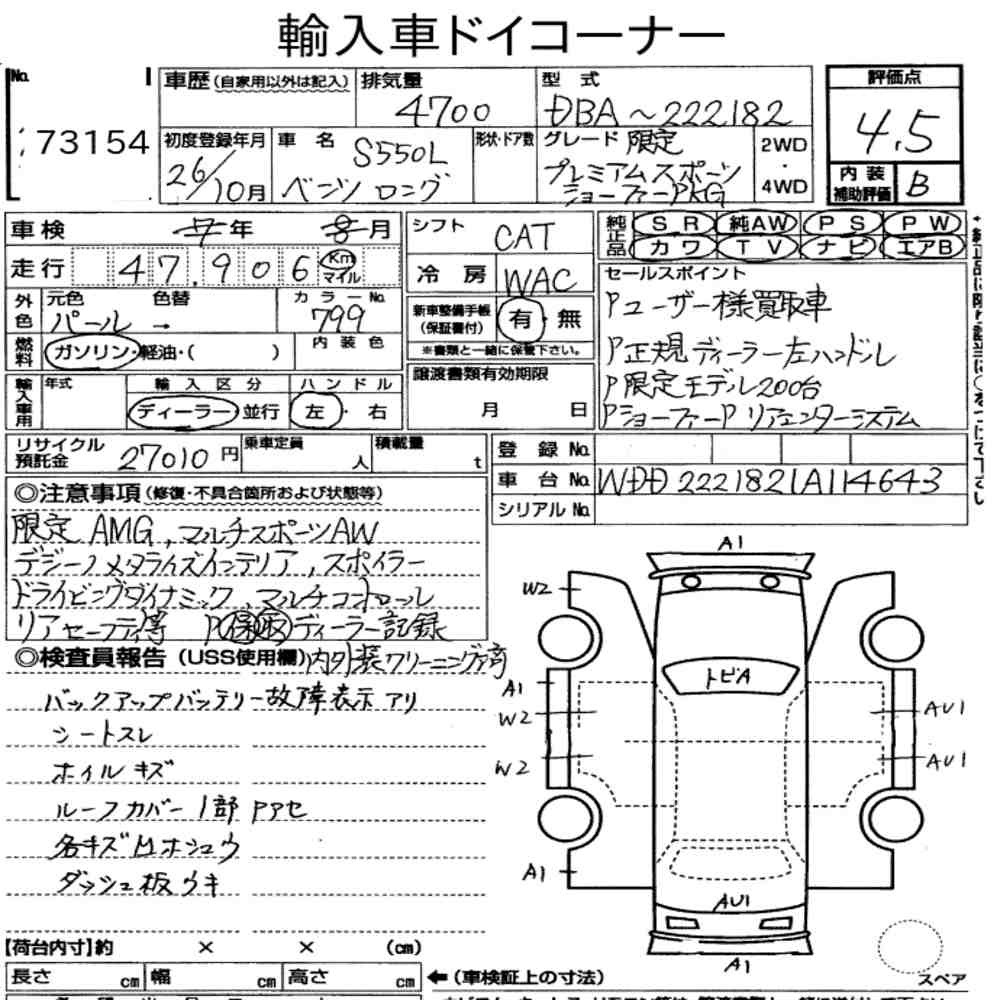 輸入車ドイコーナー
No.
73154
車歴(自家用以外は記入)
排気量
4700
型式
DBA~222182
評価点
4.5
初度登録年月
26/10月
車名
S550L
ベンツ ロング
形状・ドア数
グレード 限定
プレミアムスポーツ
ショーファーPKG
2WD
・
4WD
内装
補助評価
B
車検 7年 8月
走行 47,906 Km マイル
外色
元色 パール
色替 →
カラーNo. 799
燃料
ガソリン・軽油・( )
内装色
輸入車用
年式
輸入区分
ディーラー・並行
ハンドル
左・右
シフト
CAT
冷房
WAC
新車整備手帳
(保証書付)
有・無
※書類と一緒に保管下さい。
譲渡書類有効期限
月 日
純正品
SR 純AW PS PW
カワ TV ナビ エアB
セールスポイント
Pユーザー様買取車
P正規ディーラー左ハンドル
P限定モデル200台
PショーファーP リアエンターシステム
リサイクル
預託金
27010円
乗車定員
人
積載量
t
登録No.
車台No. WDD2221821A114643
シリアルNo.
◎注意事項(修復・不具合箇所および状態等)
限定 AMG、マルチスポーツAW
デジーノメタライズインテリア、スポイラー
ドライビングダイナミック、マルチコントロール
リアセーフティ等 P保取ディーラー記録
◎検査員報告(USS使用欄)内外装クリーニング済
バックアップバッテリー故障表示アリ
シートスレ
ホイルキズ
ルーフカバー1部Pアセ
各キズ Mホシュウ
ダッシュ板ウキ
A1
W2
トビA
A1
W2
W2
AU1
AU1
A1
AU1
A1
スペア
【荷台内寸】約 × × (cm)
長さ cm 幅 cm 高さ cm
←(車検証上の寸法)